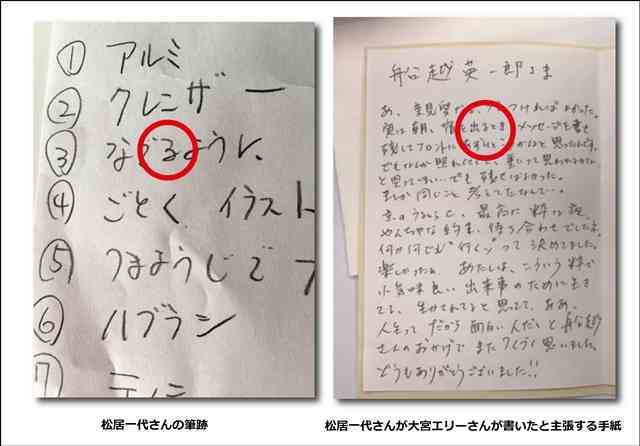 ① アルミ
② クレンザー
③ なでるように
④ ごとく イラスト
⑤ つまようじで
⑥ ハブラシ
7
船越英一郎さま
あ、意見
実は朝、 出るとき メッセージを書き
残してフロントに と思ったんです。
でもなんか照れくさくて、
と思ってしまい… でも 残せばよかった。
まさか同じこと 考えてたなんて…。
最高に粋な
やんちゃな約束、待ち合わせでした。
何が何でも"行くぞ"って決めてました。
楽しかったね あたしは、こういう粋で
小気味良い 出来事のために生き
てる、生かされてると思ってて、ああ、
人生って だから面白いんだ、と 船越
さんのおかげで またつくづく思いました。
どうもありがとうございました!!
松居一代さんの筆跡
松居一代さんが大宮エリーさんが書いたと主張する手紙